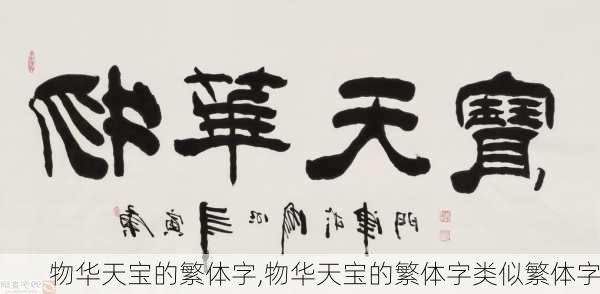 物華天寶
庚寅
津門
物华天宝的繁体字,物华天宝的繁体字类似繁体字